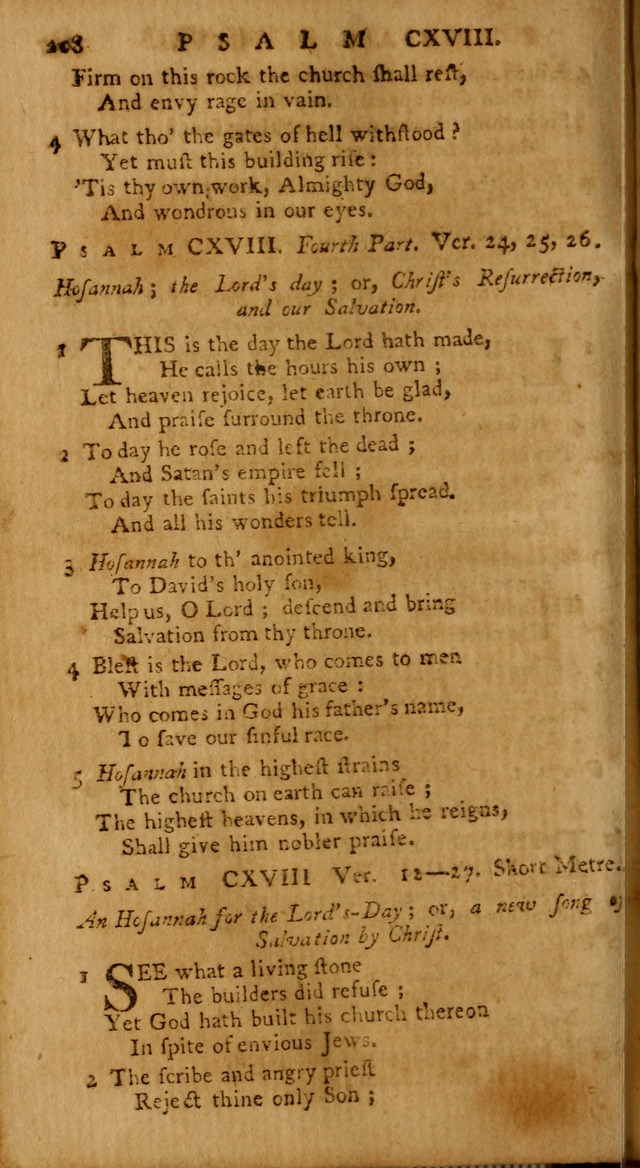 208 PSALM CXVIII.
Firm on this rock the church ſhall reſt,
And envy rage in vain.
4 What tho' the gates of hell withſtood?
Yet muſt this building riſe:
'Tis thy own work, Almighty God,
And wondrous in our eyes.
PSALM CXVIII. Fourth Part. Ver. 24, 25, 26.
Hoſannah; the Lord's day; or, Chriſt's Reſurrection,
and our Salvation.
1 THIS is the day the Lord hath made,
He calls the hours his own;
Let heaven rejoice, let earth be glad,
And praiſe ſurround the throne.
2 To day he roſe and left the dead;
And Satan's empire fell;
To day the ſaints his triumph ſpread.
And all his wonders tell.
3 Hoſannah to th' anointed king,
To David's holy ſon,
Help us, O Lord; deſcend and bring
Salvation from thy throne.
4 Bleſt is the Lord, who comes to men
With meſſages of grace:
Who comes in God his father's name,
To ſave our ſinful race.
5 Hoſannah in the higheſt ſtrains
The church on earth can raiſe;
The higheſt heavens, in which he reigns,
Shall give him nobler praiſe.
PSALM CXVIII Ver. 12—27. Short Metre.
An Hoſannah for the Lord's-Day; or, a new ſong of
Salvation by Chriſt.
1 SEE what a living ſtone
The builders did refuſe;
Yet God hath built his church thereon
In ſpite of envious Jews.
2 The ſcribe and angry prieſt
Reject thine only Son;